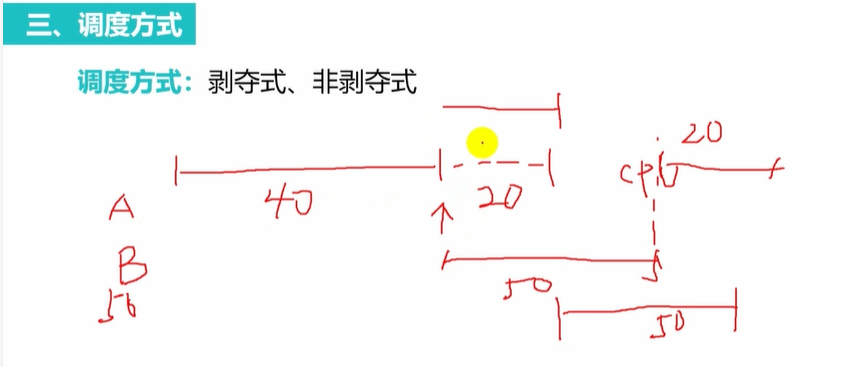 三、调度方式
调度方式：剥夺式、非剥夺式
20
cpu
40
20
A
B
50
50
50